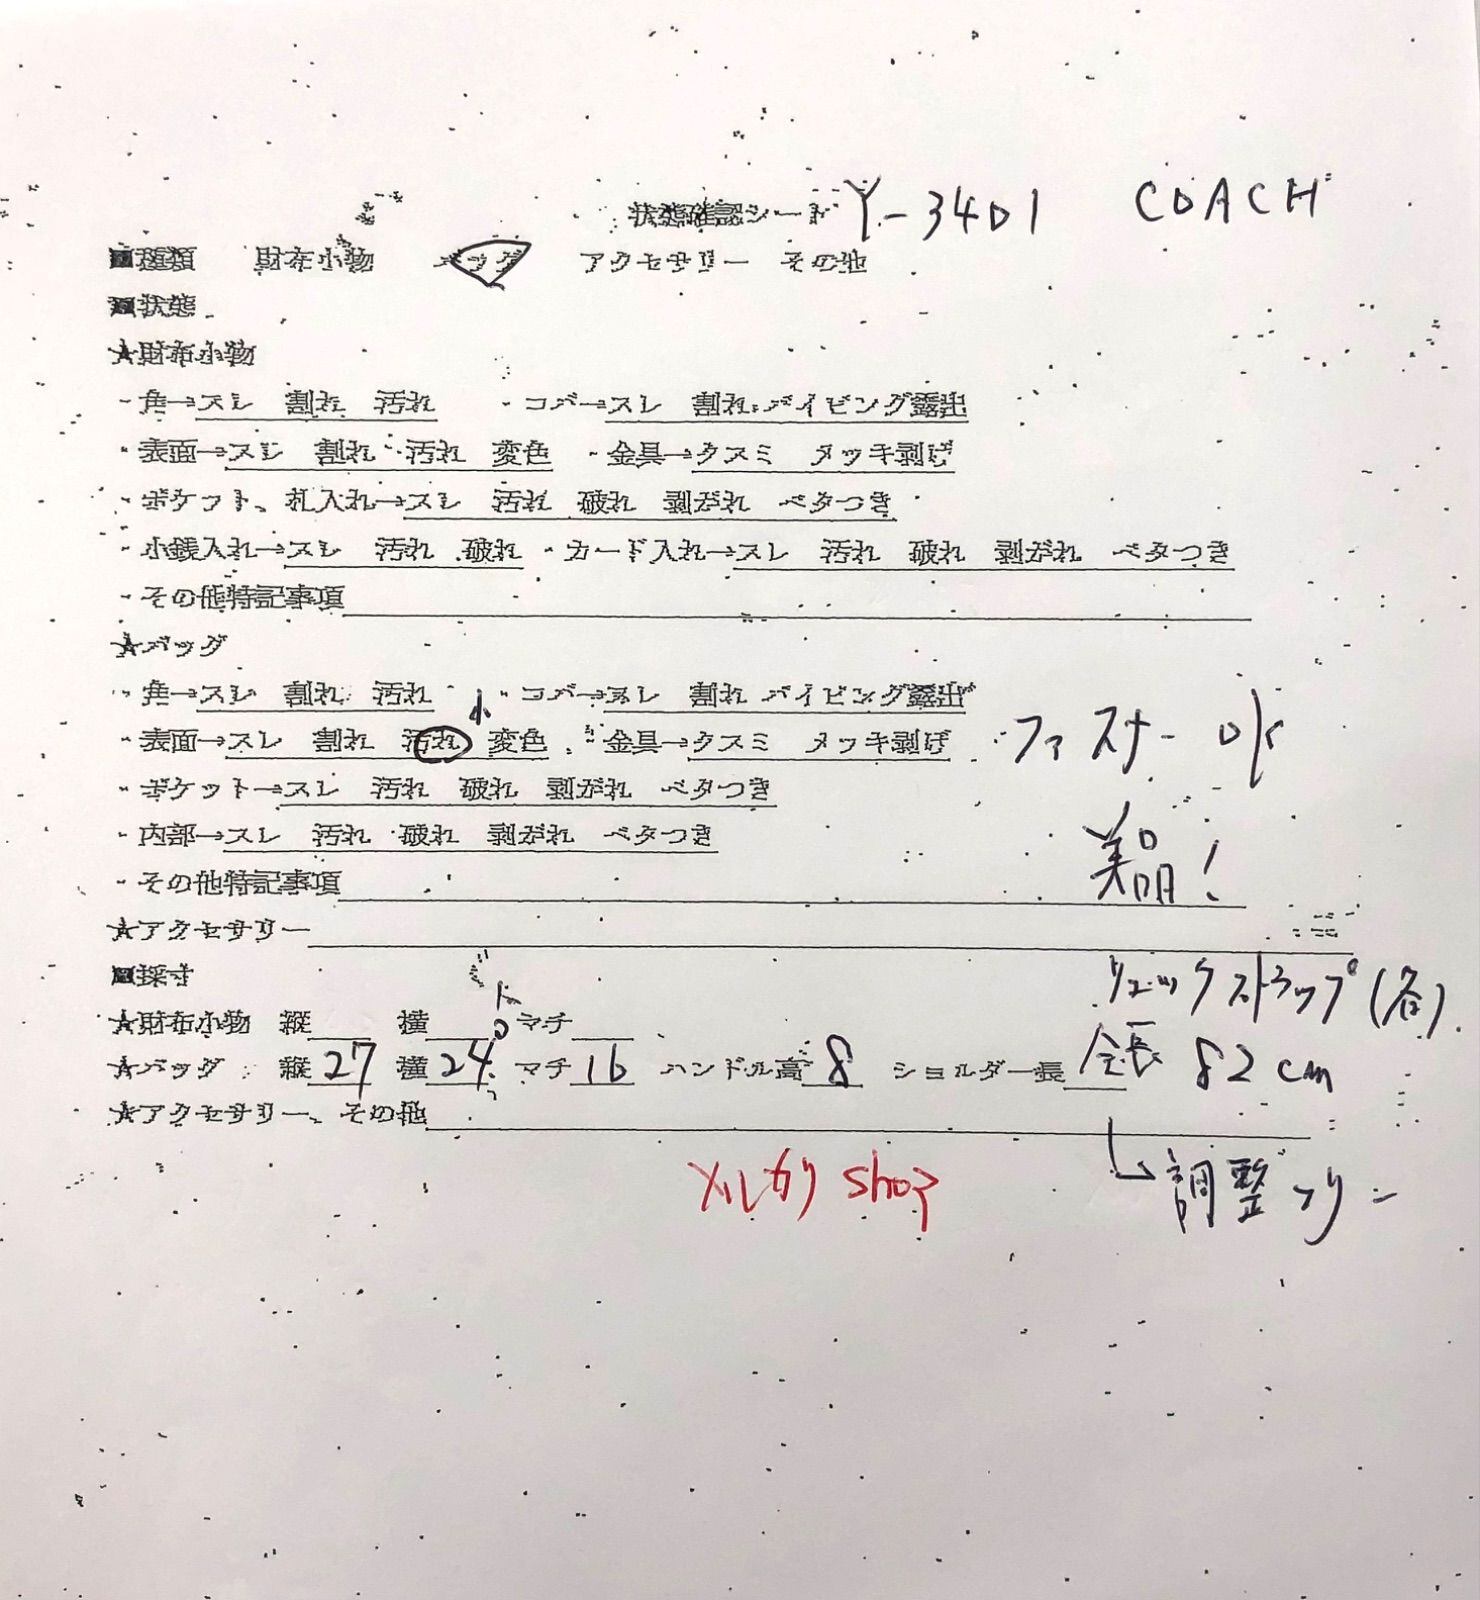 状態確認シート Y-3401 COACH
■種類 財布小物 バッグ アクセサリー その他
■状態
★財布小物
・角→スレ 割れ 汚れ ・コバ→スレ 割れ パイピング露出
・表面→スレ 割れ 汚れ 変色 ・金具→クスミ メッキ剥げ
・ポケット、札入れ→スレ 汚れ 破れ 剥がれ ベタつき
・小銭入れ→スレ 汚れ 破れ ・カード入れ→スレ 汚れ 破れ 剥がれ ベタつき
・その他特記事項
★バッグ
・角→スレ 割れ 汚れ ・コバ→スレ 割れ パイピング露出
小
・表面→スレ 割れ 汚れ 変色 ・金具→クスミ メッキ剥げ ファスナー OK
・ポケット→スレ 汚れ 破れ 剥がれ ベタつき
・内部→スレ 汚れ 破れ 剥がれ ベタつき
美品!
・その他特記事項
★アクセサリー
■採寸
リュックストラップ(各)
★財布小物 縦 横 マチ
★バッグ 縦27 横24 マチ16 ハンドル高8 ショルダー長 全長 82cm
★アクセサリー、その他
メルカリ shop
調整フリー